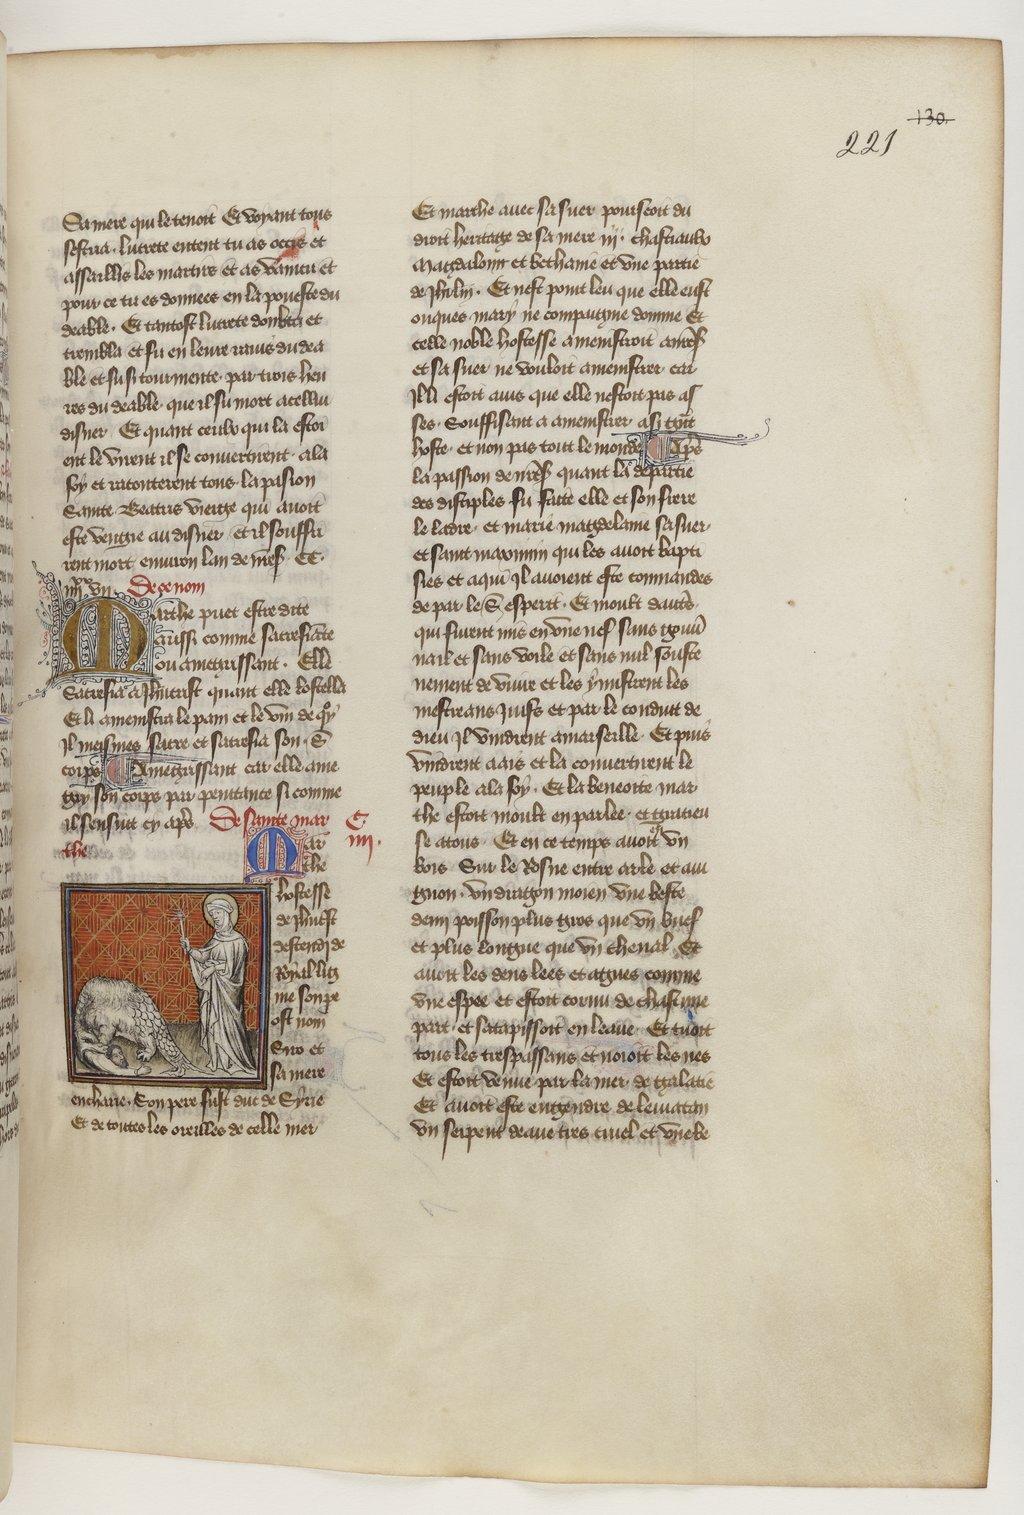 130.
221
Sa mere qui le tenoit Et voyant tous
sescria. lucrete entent tu as occis et
assaillis les martirs et as vaincu et
pour ce tu es donnees en la poueste du
deable. Et tantost lucrete doubta et
trembla et fu en leure rauis du dea
ble et fu si tourmente. par trois heu
res du deable. que il fu mort a cellui
disner. Et quant ceulx qui la estoi
ent le virent il se conuertirent. a la
foy et raconterent tous. la pasion
Sainte Beatris vierge qui auoit
este vengie au disner. et il souffri
rent mort enuiron lan de nrẽs. CC.
iiiixx. vii. De ce nom
Marthe puet estre dite
aussi comme sacrefiãte
ou amegrissant. Elle
Sacrefia a Jhucrist quant elle lostella
Et li amenistra le pain et le vin de qoy
Il meismes sacre et sacrefia son. S
corps Amegrissant car elle ame
gry son corps par penitance si comme
il sensuit cy apñs. De sainte mar C.
the iiii.
Mar
the
hostesse
de Jhucst
descendi de
Royal lig
nie son pe
ost nom
Siro et
sa mere
encharie. Son pere fust duc de Syrie
Et de toutes les oreilles de celle mer
Et marthe auec sa suer pourseoit du
droit heritage de sa mere iii. chastiaulx
Magdalonn et bethanie et vne partie
de Jhrlm. Et nest point leu que elle eust
onques mary ne compaignie domme Et
celle noble hostesse amenistroit a nrẽs
et sa suer ne vouloit amenistrer car
Il li estoit auis que elle nestoit pas as
ses. Souffisant a amenistrer. a si grãt
hoste. et non pas tout le monde Apñs
la passion de nrẽs quant la departie
des disciples fu faite elle et son frere
le ladre. et marie magdelaine sa suer
et saint maximin qui les auoit bapti
sies et a qui Il auoient este commandes
de par le S. esperit. Et moult dautrẽs
qui furent mis en vne nef sans gouũ
nail et sans voile et sans nul souste
nement de viure et les y mistrent les
mescreans Juifs et par le conduit de
dieu Il vindrent a marseille. Et puis
vindrent a ais et la conuertirent le
peuple a la foy. Et la beneoite mar
the estoit moult en parlee. et gracieu
se a tous. Et en ce temps auoit vn
bois Sur le Rosne entre arle et aui
gnon. vn dragon moien vne beste
demi poisson plus gros que vn buef
et plus longue que vn cheual. Et
auoit les dens lees et agues comme
vne espee et estoit cornu de chascune
part. et satapissoit en leaue. Et tuoit
tous les trespassans et noioit les nes
Et estoit venue par la mer. de galacie
Et auoit este engendre de leuiatan
vn serpent deaue tres cruel et vne be